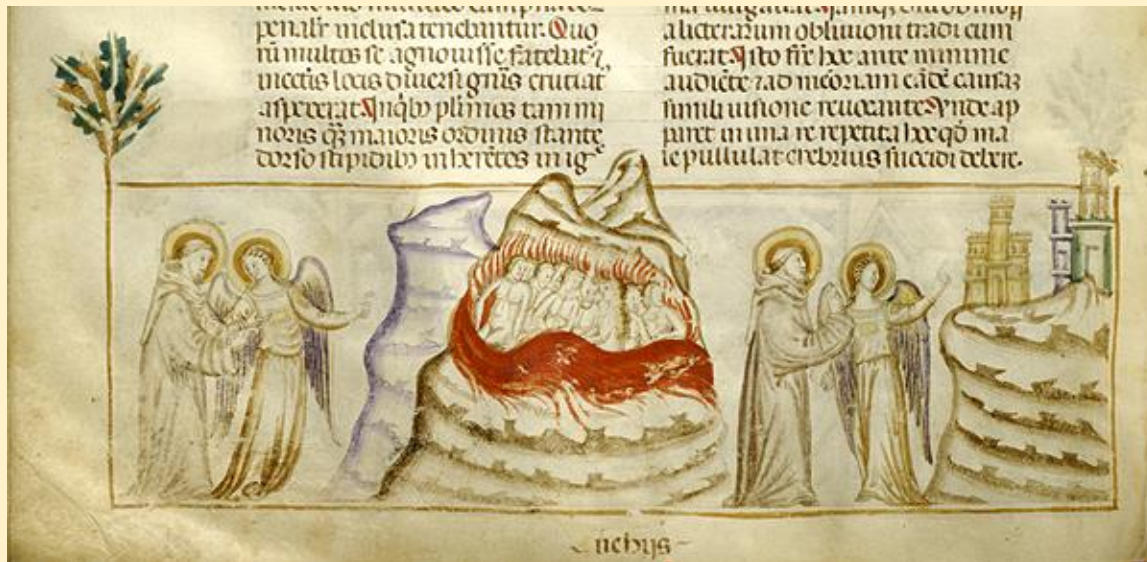 penalit inclusa tenebantur. Quo
rū multos se agnouisse fatebat
incertis locis diuersi gnis cruciat
aspexerat. plimos tam mi
noris qʒ maioris ordinis stante
dorso stipidibʒ inherētes in ig
a licterarum obliuioni tradi cum
fuerat. Isto fre hoc ante minime
audiēte ⁊ ad meoriam causaʒ
simili uisione reuocante. Vnde ap
paret in una re repetita hoc qd ma
le pullulat crebrius succidi debere.